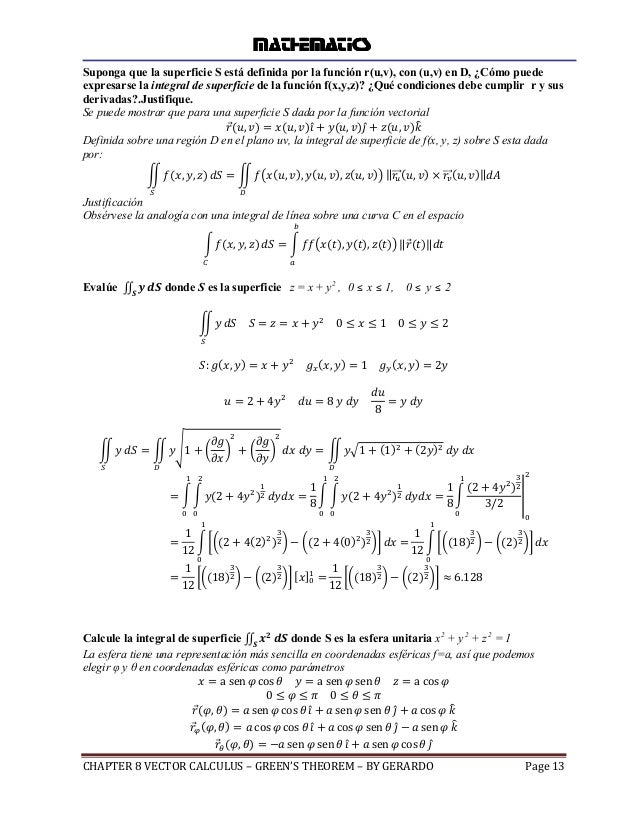 MATHEMATICS
Suponga que la superficie S está definida por la función r(u,v), con (u,v) en D, ¿Cómo puede
expresarse la integral de superficie de la función f(x,y,z)? ¿Qué condiciones debe cumplir r y sus
derivadas?.Justifique.
Se puede mostrar que para una superficie S dada por la función vectorial
r⃗(u, v) = x(u, v)î + y(u, v)ĵ + z(u, v)k̂
Definida sobre una región D en el plano uv, la integral de superficie de f(x, y, z) sobre S esta dada
por:
∬_S f(x, y, z) dS = ∬_D f(x(u, v), y(u, v), z(u, v)) ‖r⃗_u(u, v) × r⃗_v(u, v)‖dA
Justificación
Obsérvese la analogía con una integral de línea sobre una curva C en el espacio
∫_C f(x, y, z)dS = ∫_a^b ff(x(t), y(t), z(t)) ‖r⃗(t)‖dt
Evalúe ∬_S y dS donde S es la superficie z = x + y² , 0 ≤ x ≤ 1, 0 ≤ y ≤ 2
∬_S y dS S = z = x + y² 0 ≤ x ≤ 1 0 ≤ y ≤ 2
S: g(x, y) = x + y² g_x(x, y) = 1 g_y(x, y) = 2y
u = 2 + 4y² du = 8 y dy du/8 = y dy
∬_S y dS = ∬_D y√(1 + (∂g/∂x)² + (∂g/∂y)²) dx dy = ∬_D y√(1 + (1)² + (2y)²) dy dx
= ∫_0^1 ∫_0^2 y(2 + 4y²)^(1/2) dydx = 1/8 ∫_0^1 ∫_0^2 y(2 + 4y²)^(1/2) dydx = 1/8 ∫_0^1 (2 + 4y²)^(3/2) / (3/2) |_0^2
= 1/12 ∫_0^1 [((2 + 4(2)²)^(3/2)) − ((2 + 4(0)²)^(3/2))] dx = 1/12 ∫_0^1 [((18)^(3/2)) − ((2)^(3/2))] dx
= 1/12 [((18)^(3/2)) − ((2)^(3/2))] [x]_0^1 = 1/12 [((18)^(3/2)) − ((2)^(3/2))] ≈ 6.128
Calcule la integral de superficie ∬_S x² dS donde S es la esfera unitaria x² + y² + z² = 1
La esfera tiene una representación más sencilla en coordenadas esféricas f=a, así que podemos
elegir φ y θ en coordenadas esféricas como parámetros
x = a sen φ cos θ y = a sen φ sen θ z = a cos φ
0 ≤ φ ≤ π 0 ≤ θ ≤ π
r⃗(φ, θ) = a sen φ cos θ î + a sen φ sen θ ĵ + a cos φ k̂
r⃗_φ(φ, θ) = a cos φ cos θ î + a cos φ sen θ ĵ − a sen φ k̂
r⃗_θ(φ, θ) = −a sen φ sen θ î + a sen φ cos θ ĵ
CHAPTER 8 VECTOR CALCULUS – GREEN'S THEOREM – BY GERARDO Page 13